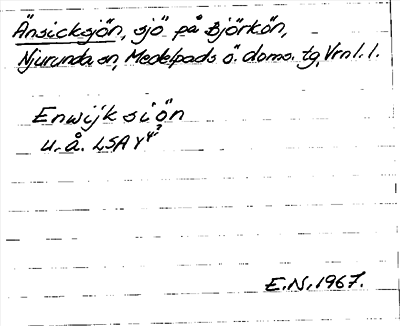 Änsicksjön, sjö på Björkön,
Njurunda sn, Medelpads ö. doms. tg, Vrnl. l.
Enwijk siön
u. å. LSA Y 4:2
E.N. 1967.